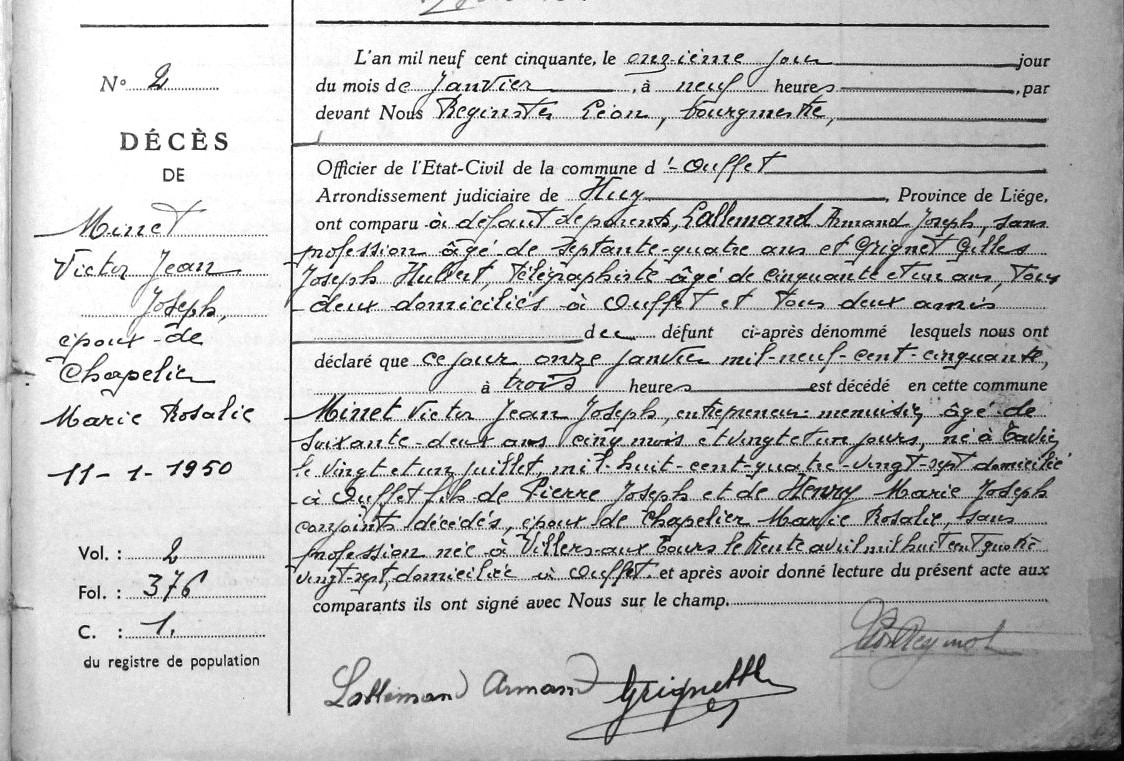 N° 2
DÉCÈS
DE
Minet
Victor Jean
Joseph,
époux de
Chapelier
Marie Rosalie
11-1-1950
Vol. : 2
Fol. : 376
C. : 1.
du registre de population
L'an mil neuf cent cinquante, le onzième jour jour
du mois de Janvier, à neuf heures, par
devant Nous Reginster Léon, bourgmestre,
Officier de l'Etat-Civil de la commune d'Ouffet
Arrondissement judiciaire de Huy, Province de Liége,
ont comparu à défaut de parents, Lallemand Armand Joseph, sans
profession âgé de septante-quatre ans et Grignet Gilles
Joseph Hubert, télégraphiste âgé de cinquante et un ans, tous
deux domiciliés à Ouffet et tous deux amis
du défunt ci-après dénommé lesquels nous ont
déclaré que ce jour onze janvier mil-neuf-cent-cinquante,
à trois heures est décédé en cette commune
Minet Victor Jean Joseph, entrepreneur menuisier, âgé de
soixante-deux ans cinq mois et vingt et un jours, né à Tavier,
le vingt et un juillet, mil-huit-cent-quatre-vingt-sept domicilié
à Ouffet fils de Pierre Joseph et de Henry Marie Joseph
conjoints décédés, époux de Chapelier Marie Rosalie, sans
profession née à Villers-aux-Tours le trente avril mil huit cent quatre
vingt-sept, domiciliée à Ouffet. et après avoir donné lecture du présent acte aux
comparants ils ont signé avec Nous sur le champ.
Lallemand Armand